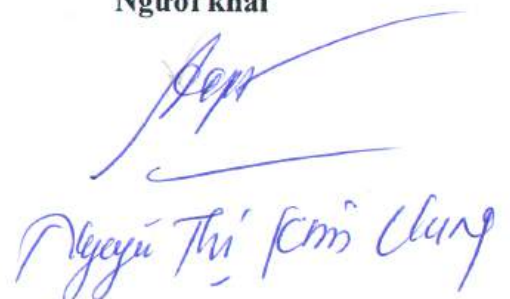 Người khai
Nguyễn Thị Kim Chung